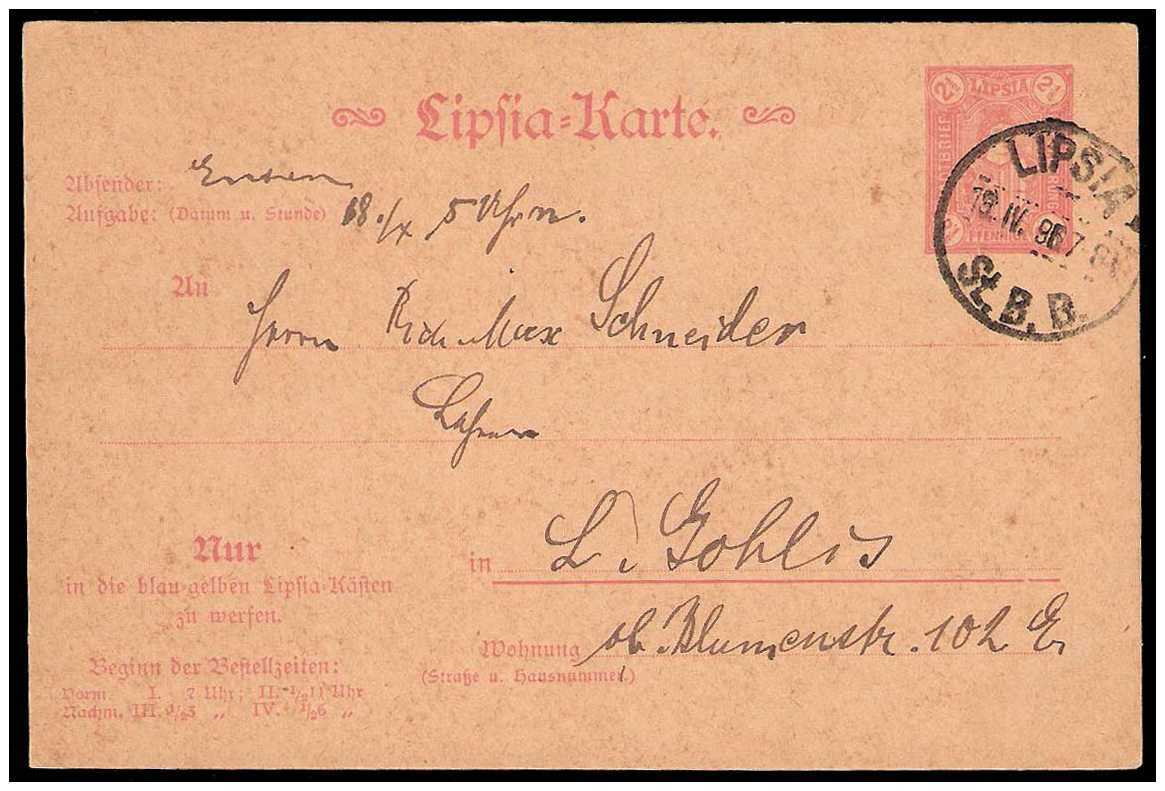 Lipsia-Karte.
2½ LIPSIA 2½
BRIEF
PFENNIG
LIPSIA
19. IV. 96 7-8
St. B. B.
Absender:
Aufgabe: (Datum u. Stunde) 18./X 5 Uhr n.
An
Herrn Rich. Max Schneider
in L. Gohlis
Nur
in die blau-gelben Lipsia-Kästen
zu werfen.
Wohnung ob. Blumenstr. 102 E
(Straße u. Hausnummer.)
Beginn der Bestellzeiten:
Vorm. I. 7 Uhr; II. ½11 Uhr
Nachm. III. ½3 „ IV. ½6 „